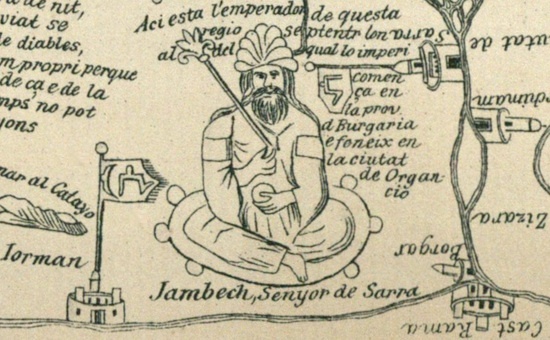 viat se
de diables,
m propri perque
de ça e de la
mps, no pot
yons
Aci esta l'emperador de questa
regio septentrlonra
al qual lo imperi
Sarra
comen
ça en
la prov
d Burgaria
e foneix en
la ciutat
de Organ
cio
mar al Catayo
Iorman
Jambech, Senyor de Sarra
utat de
Zizara
Borgax
Cast Rama